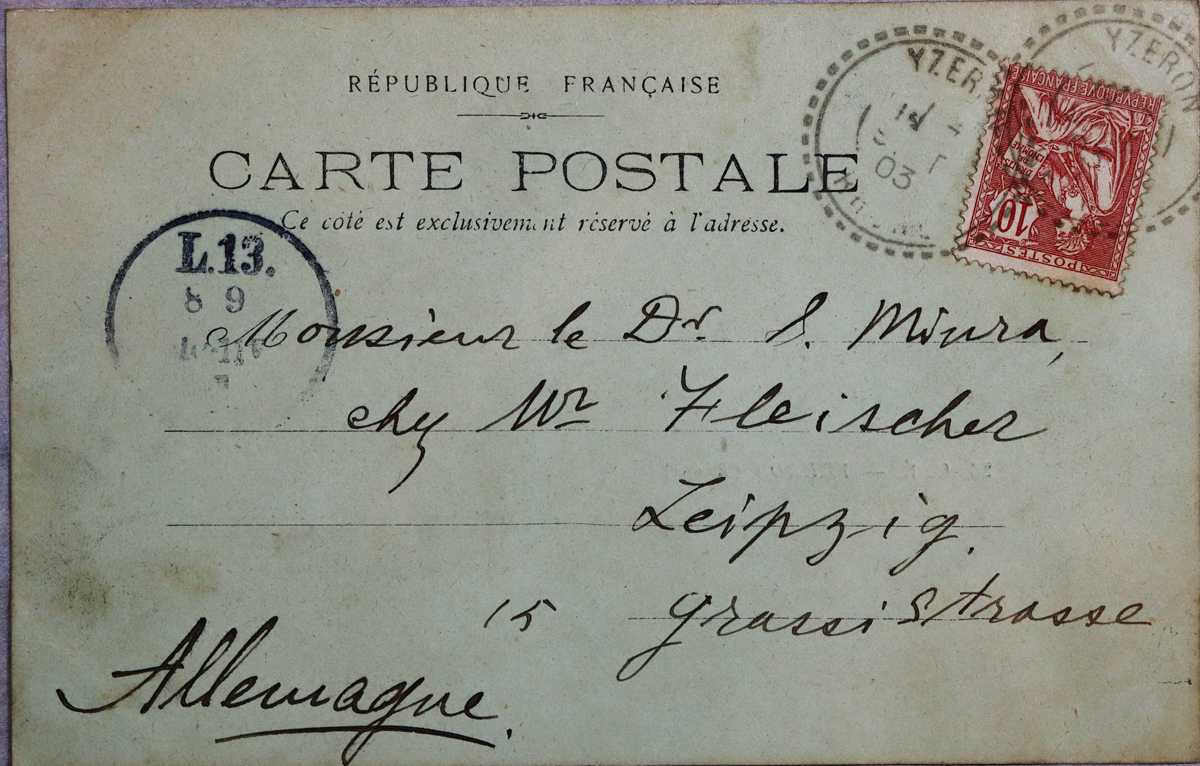 RÉPUBLIQUE FRANÇAISE
CARTE POSTALE
Ce côté est exclusivement réservé à l'adresse.
YZERON
YZERON
03
RÉPUBLIQUE FRANÇAISE
10
POSTES
L.13.
8 9
Monsieur le Dr S. Miura,
chez Mr Fleischer
Leipzig.
15 Grassistrasse
Allemagne.